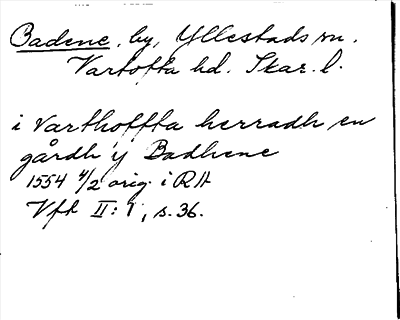 Badene, by, Yllestads sn.
Vartofta hd. Skar. l.
i Varthoffta herradh en
gårdh ij Badhene
1554 4/2 orig. i RA
Vfk II: 1, s. 36.